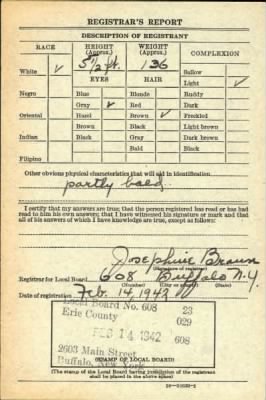 REGISTRAR'S REPORT
DESCRIPTION OF REGISTRANT
RACE HEIGHT (Approx.) WEIGHT (Approx.) COMPLEXION
5 1/2 ft. 136
White ✓ Sallow
EYES HAIR Light ✓
Negro Blue Blonde Ruddy
Gray ✓ Red Dark
Oriental Hazel Brown ✓ Freckled
Brown Black Light brown
Indian Black Gray Dark brown
Bald Black
Filipino
Other obvious physical characteristics that will aid in identification
partly bald
I certify that my answers are true; that the person registered has read or has had
read to him his own answers; that I have witnessed his signature or mark and that
all of his answers of which I have knowledge are true, except as follows:
Josephine Braun
(Signature of registrar)
Registrar for Local Board 608 Buffalo N.Y.
(Number) (City or county) (State)
Date of registration Feb. 14, 1942
Local Board No. 608 23
Erie County 029
FEB 14 1942 608
2603 Main Street
Buffalo, New York
(STAMP OF LOCAL BOARD)
(The stamp of the Local Board having jurisdiction of the registrant
shall be placed in the above space.)